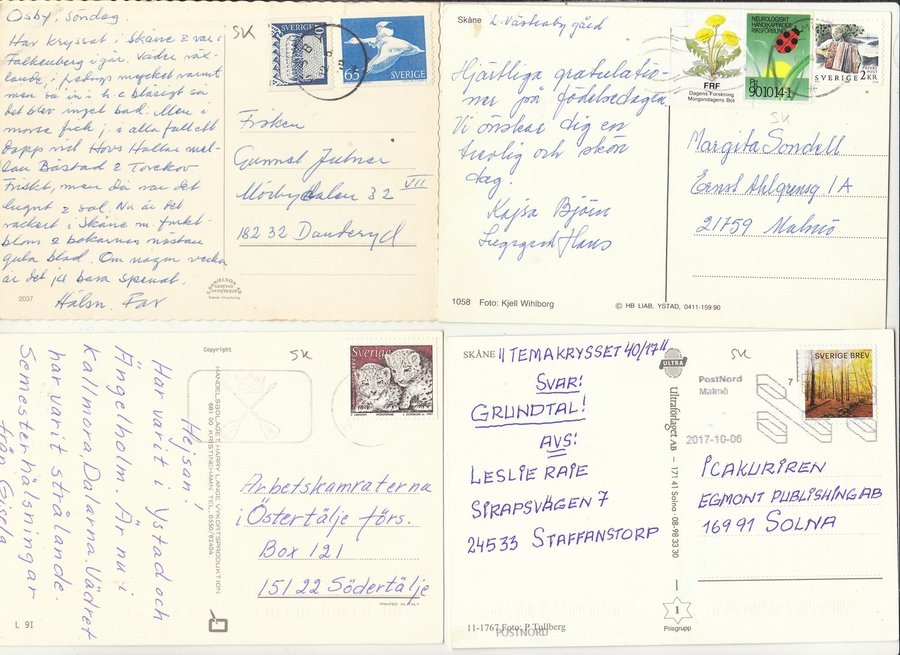 Osby, Söndag.
Har kryssat i Skåne & var i
Falkenberg i går. Vädret väx-
lande, i fredags mycket varmt
men så in i h-e blåsigt så
det blev inget bad. Men i
morse fick j. i alla fall ett
dopp vid Hovs Hallar mel-
lan Båstad & Torekov
Friskt, men då var det
lugnt & sol. Nu är det
vackert i Skåne m. frukt-
blom & bokarnas nästan
gula blad. Om någon vecka
är det ju bara spenat.
Hälsn. Far
2037
SK
SVERIGE
65 SVERIGE
Fröken
Gunnel Julner
Mörbydalen 32 VII
182 32 Danderyd
Skåne
L. Västraby gård
Hjärtliga gratulatio-
ner på födelsedagen
Vi önskar dig en
trevlig och skön
dag.
Kajsa Björn
Hans
1058 Foto: Kjell Wihlborg
FRF
Dagens Forskning
Morgondagens Bot
NEUROLOGISKT
HANDIKAPPADES
RIKSFÖRBUND
Pg 901014-1
SVERIGE
2 KR
SK
Margita Sondell
Ernst Ahlgrensg 1A
21759 Malmö
© HB LIAB, YSTAD, 0411-159 90
Hejsan!
Har varit i Ystad och
Ängelholm. Är nu i
Kallmora, Dalarna. Vädret
har varit strålande.
Semesterhälsningar
från Gisela
L 91
Copyright
HANDELSBOLAGET HARRY LANGE, VYKORTSPRODUKTION
681 00 KRISTINEHAMN TEL. 0550/82404
SK
Sverige
Arbetskamraterna
i Östertälje förs.
Box 121
151 22 Södertälje
PRINTED IN ITALY
SKÅNE
"TEMAKRYSSET 40/17"
SVAR:
GRUNDTAL!
AVS:
LESLIE RAIE
SIRAPSVÄGEN 7
24533 STAFFANSTORP
11-1767 Foto: P. Tullberg
POSTNORD
ULTRA
Ultraförlaget AB – 171 41 Solna 08-98 33 30
1
Prisgrupp
SK
PostNord
Malmö
2017-10-06
7
SVERIGE BREV
ICAKURIREN
EGMONT PUBLISHING AB
169 91 SOLNA